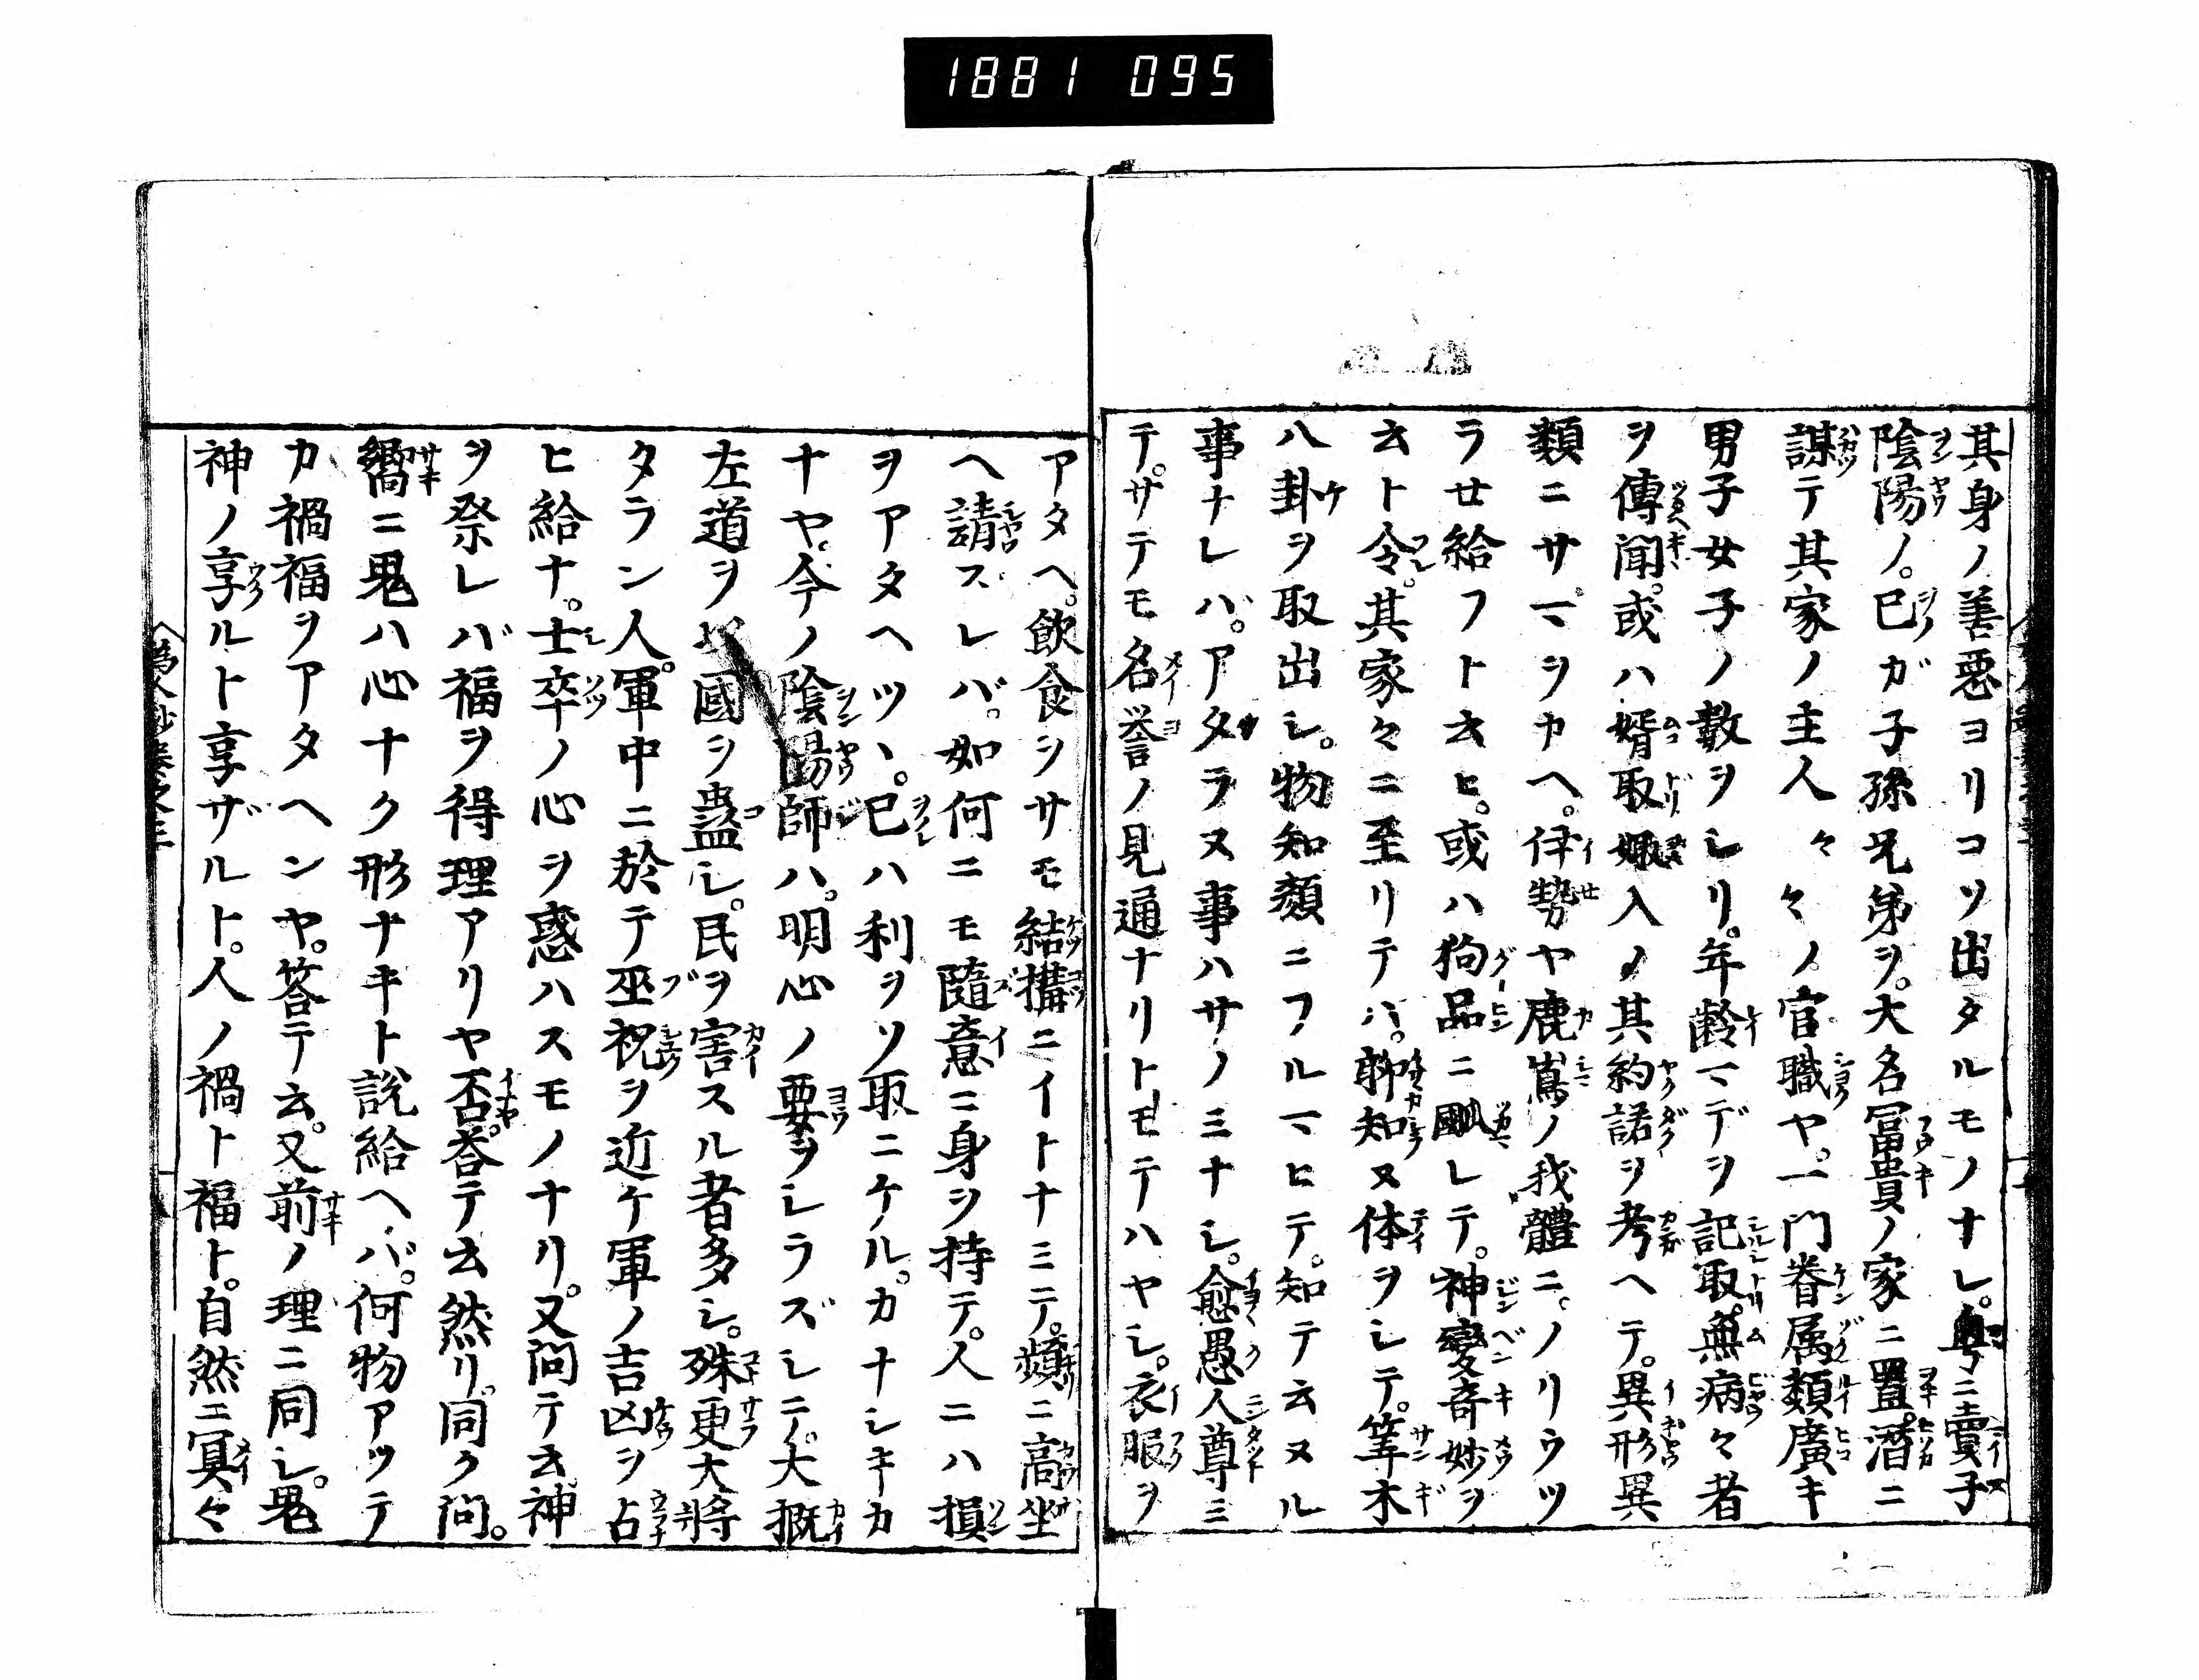 1881 095
其身ノ善惡ヨリコソ出タルモノナレ。粤ニ賣子
陰陽ノ。已ガ子孫兄弟ヲ。大名冨貴ノ家ニ置。潛ニ
謀テ其家ノ主人々々ノ。官職ヤ。一門眷属類廣キ
男子女子ノ數ヲシリ。年齢マデヲ記取。無病々者
ヲ傳聞。或ハ婿取娵入ノ其約諾ヲ考ヘテ。異形異
類ニサマヲカヘ。伊勢ヤ鹿嶌ノ我體ニ。ノリウツ
ラせ給フト云ヒ。或ハ狗品ニ𩗗レテ。神變奇妙ヲ
云ト令。其家々ニ至リテハ。聊知ヌ体ヲシテ。筭木
八卦ヲ取出シ。物知顔ニフルマヒテ。知テ云ヌル
事ナレバ。アタラヌ事ハサノミナシ。愈愚人尊ミ
テ。サテモ名誉ノ見通ナリトモテハヤシ。衣服ヲ
アタヘ。飲食ヲサモ結搆ニイトナミテ。頻ニ高坐
ヘ請スレバ。如何ニモ隨意ニ身ヲ持テ。人ニハ損
ヲアタヘツヽ。已ハ利ヲソ取ニケル。カナシキカ
ナヤ。今ノ陰陽師ハ。明心ノ要ヲシラズシテ。大概
左道ヲ 國ヲ蠱シ。民ヲ害スル者多シ。殊更大將
タラン人。軍中ニ於テ巫祝ヲ近ケ軍ノ吉凶ヲ占
ヒ給ナ。士卒ノ心ヲ惑ハスモノナリ。又問テ云神
ヲ祭レバ福ヲ得理アリヤ否。答テ云然リ。同ク問。
嚮ニ鬼ハ心ナク形ナキト説給ヘバ。何物アッテ
カ禍福ヲアタヘンヤ。答テ云。又前ノ理ニ同シ。鬼
神ノ享ルト享ザルト。人ノ禍ト福ト。自然ニ冥々
為人鈔巻之三